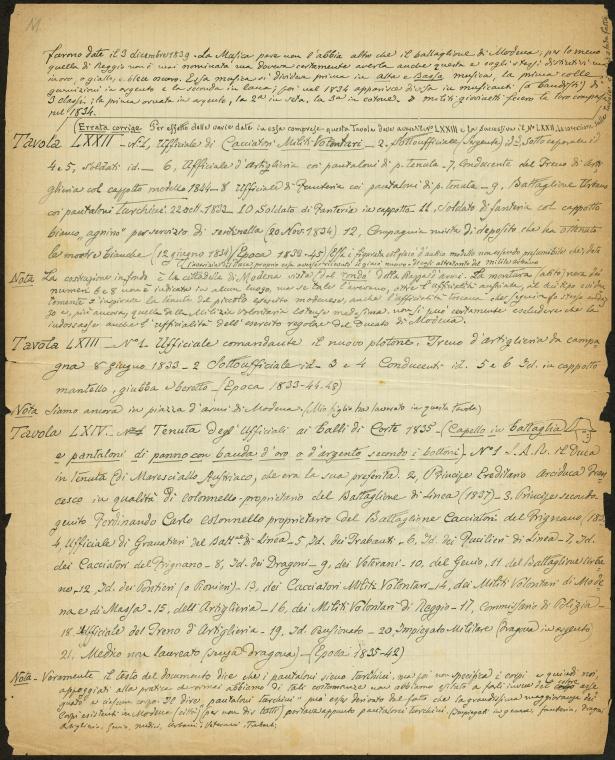 M.
furono date il 3 dicembre 1839 - La Musica pare non l'abbia altro che il battaglione di Modena; per lo meno
quella di Reggio non è mai nominata ma doveva certamente averla anche questa e cogli stessi distintivi
in oro, o giallo, e bleu scuro. Essa musica si divideva prima in alta e Bassa musica, la prima colle
guarnizioni in argento e la seconda in lana; poi nel 1834 apparisce divisa in musicanti (o bandisti) di
3 classi; la prima ornata in argento, la 2ª in seta, la 3ª in cotone. I militi giovinetti fecero la loro comparsa
nel 1834.
Errata corrige. Per effetto delle varie date in essa comprese questa Tavola deve avere il Nº LXXIII e la successiva il Nº LXXII
Tavola LXXII - Nº1, Ufficiale di Cacciatori Militi Volontari - 2, Sottoufficiale (Sergente) id - 3, Sotto caporale id
4 e 5, Soldati id. - 6, Ufficiale d'Artiglieria coi pantaloni di p. tenuta - 7, Conducente del Treno di Arti-
glieria col cappotto modello 1824 - 8 Ufficiale di Fanteria coi pantaloni di p. tenuta - 9, Battaglione Urbano
coi pantaloni turchini 22 ott. 1833 - 10 Soldato di Fanteria in cappotto - 11, Soldato di fanteria col cappotto
bianco "agnino" per servizio di sentinella (20 Nov. 1834) 12, Compagnia mista di deposito che ha ottenuto
le mostre bianche (12 giugno 1834) (Epoca 1832-45)
Nota La costruzione in fondo è la cittadella di Modena vista dal tondo della Piazza d'armi. La montura (alto) nera dei
numeri 6 e 8 non è indicata in alcun luogo, ma se tale l'avevano, oltre l'ufficialità austriaca, il cui tipo eviden-
temente s'inspirava la tenuta del piccolo esercito modenese, anche l'ufficialità toscana che seguiva lo stesso anda-
zo e, più ancora, quella della Milizia Volontaria estense medesima non si può certamente escludere che la
indossasse anche l'ufficialità dell'esercito regolare del Ducato di Modena.
Tavola LXIII - Nº1. Ufficiale comandante il nuovo plotone. Treno d'artiglieria da campa-
gna 8 giugno 1833 - 2 Sottoufficiale id - 3 e 4 Conducenti id. 5 e 6 Id. in cappotto
mantello, giubba e beretto - (Epoca 1833-44-48)
Nota Siamo ancora in piazza d'armi di Modena. (Mio figlio ha lavorato in questa tavola)
Tavola LXIV - Tenuta degl'Ufficiali ai Balli di Corte 1835 - (Capello in battaglia
e pantaloni di panno con banda d'oro o d'argento secondo i bottoni) - Nº1 S.A.R. il Duca
in tenuta di Maresciallo Austriaco, che era la sua preferita. 2, Principe Ereditario Arciduca Fran-
cesco in qualità di colonnello-proprietario del Battaglione di Linea (1837) - 3. Principe secondo-
genito Ferdinando Carlo colonnello proprietario del Battaglione Cacciatori del Frignano
4, Ufficiale di Granatieri del Batt.ne di Linea - 5, Id. dei Trabanti - 6, Id. dei Fucilieri di Linea - 7, Id.
dei Cacciatori del Frignano - 8, Id. dei Dragoni - 9, dei Veterani - 10, del Genio, 11 del Battaglione Urba-
no - 12, Id. dei Pontieri (o Pionieri) - 13, dei Cacciatori Militi Volontari - 14, dei Militi Volontari di Mode-
na e di Massa - 15, dell'Artiglieria - 16, dei Militi Volontari di Reggio - 17, Commissario di Polizia -
18. Ufficiale del Treno d'Artiglieria - 19, Id. Pensionato - 20, Impiegato Militare (Dragona in argento)
21, Medico non laureato (senza dragona) - (Epoca 1835-42)
Nota - Veramente il testo del documento dice che i pantaloni siano turchini, ma poi non specifica i corpi e quindi noi,
appoggiati alla pratica che ormai abbiamo di tali costumanze non abbiamo esitato a farli invece del colore
a ciascun corpo. Il dire "pantaloni turchini" può esser derivato dal fatto che la grandissima maggioranza dei
Corpi esistenti in Modena (città) (per non dire tutti) portava appunto pantaloni turchini. Impiegati in genere, fanteria, dragoni
Artiglieri, Genio, medici, urbani, Veterani, Trabanti.